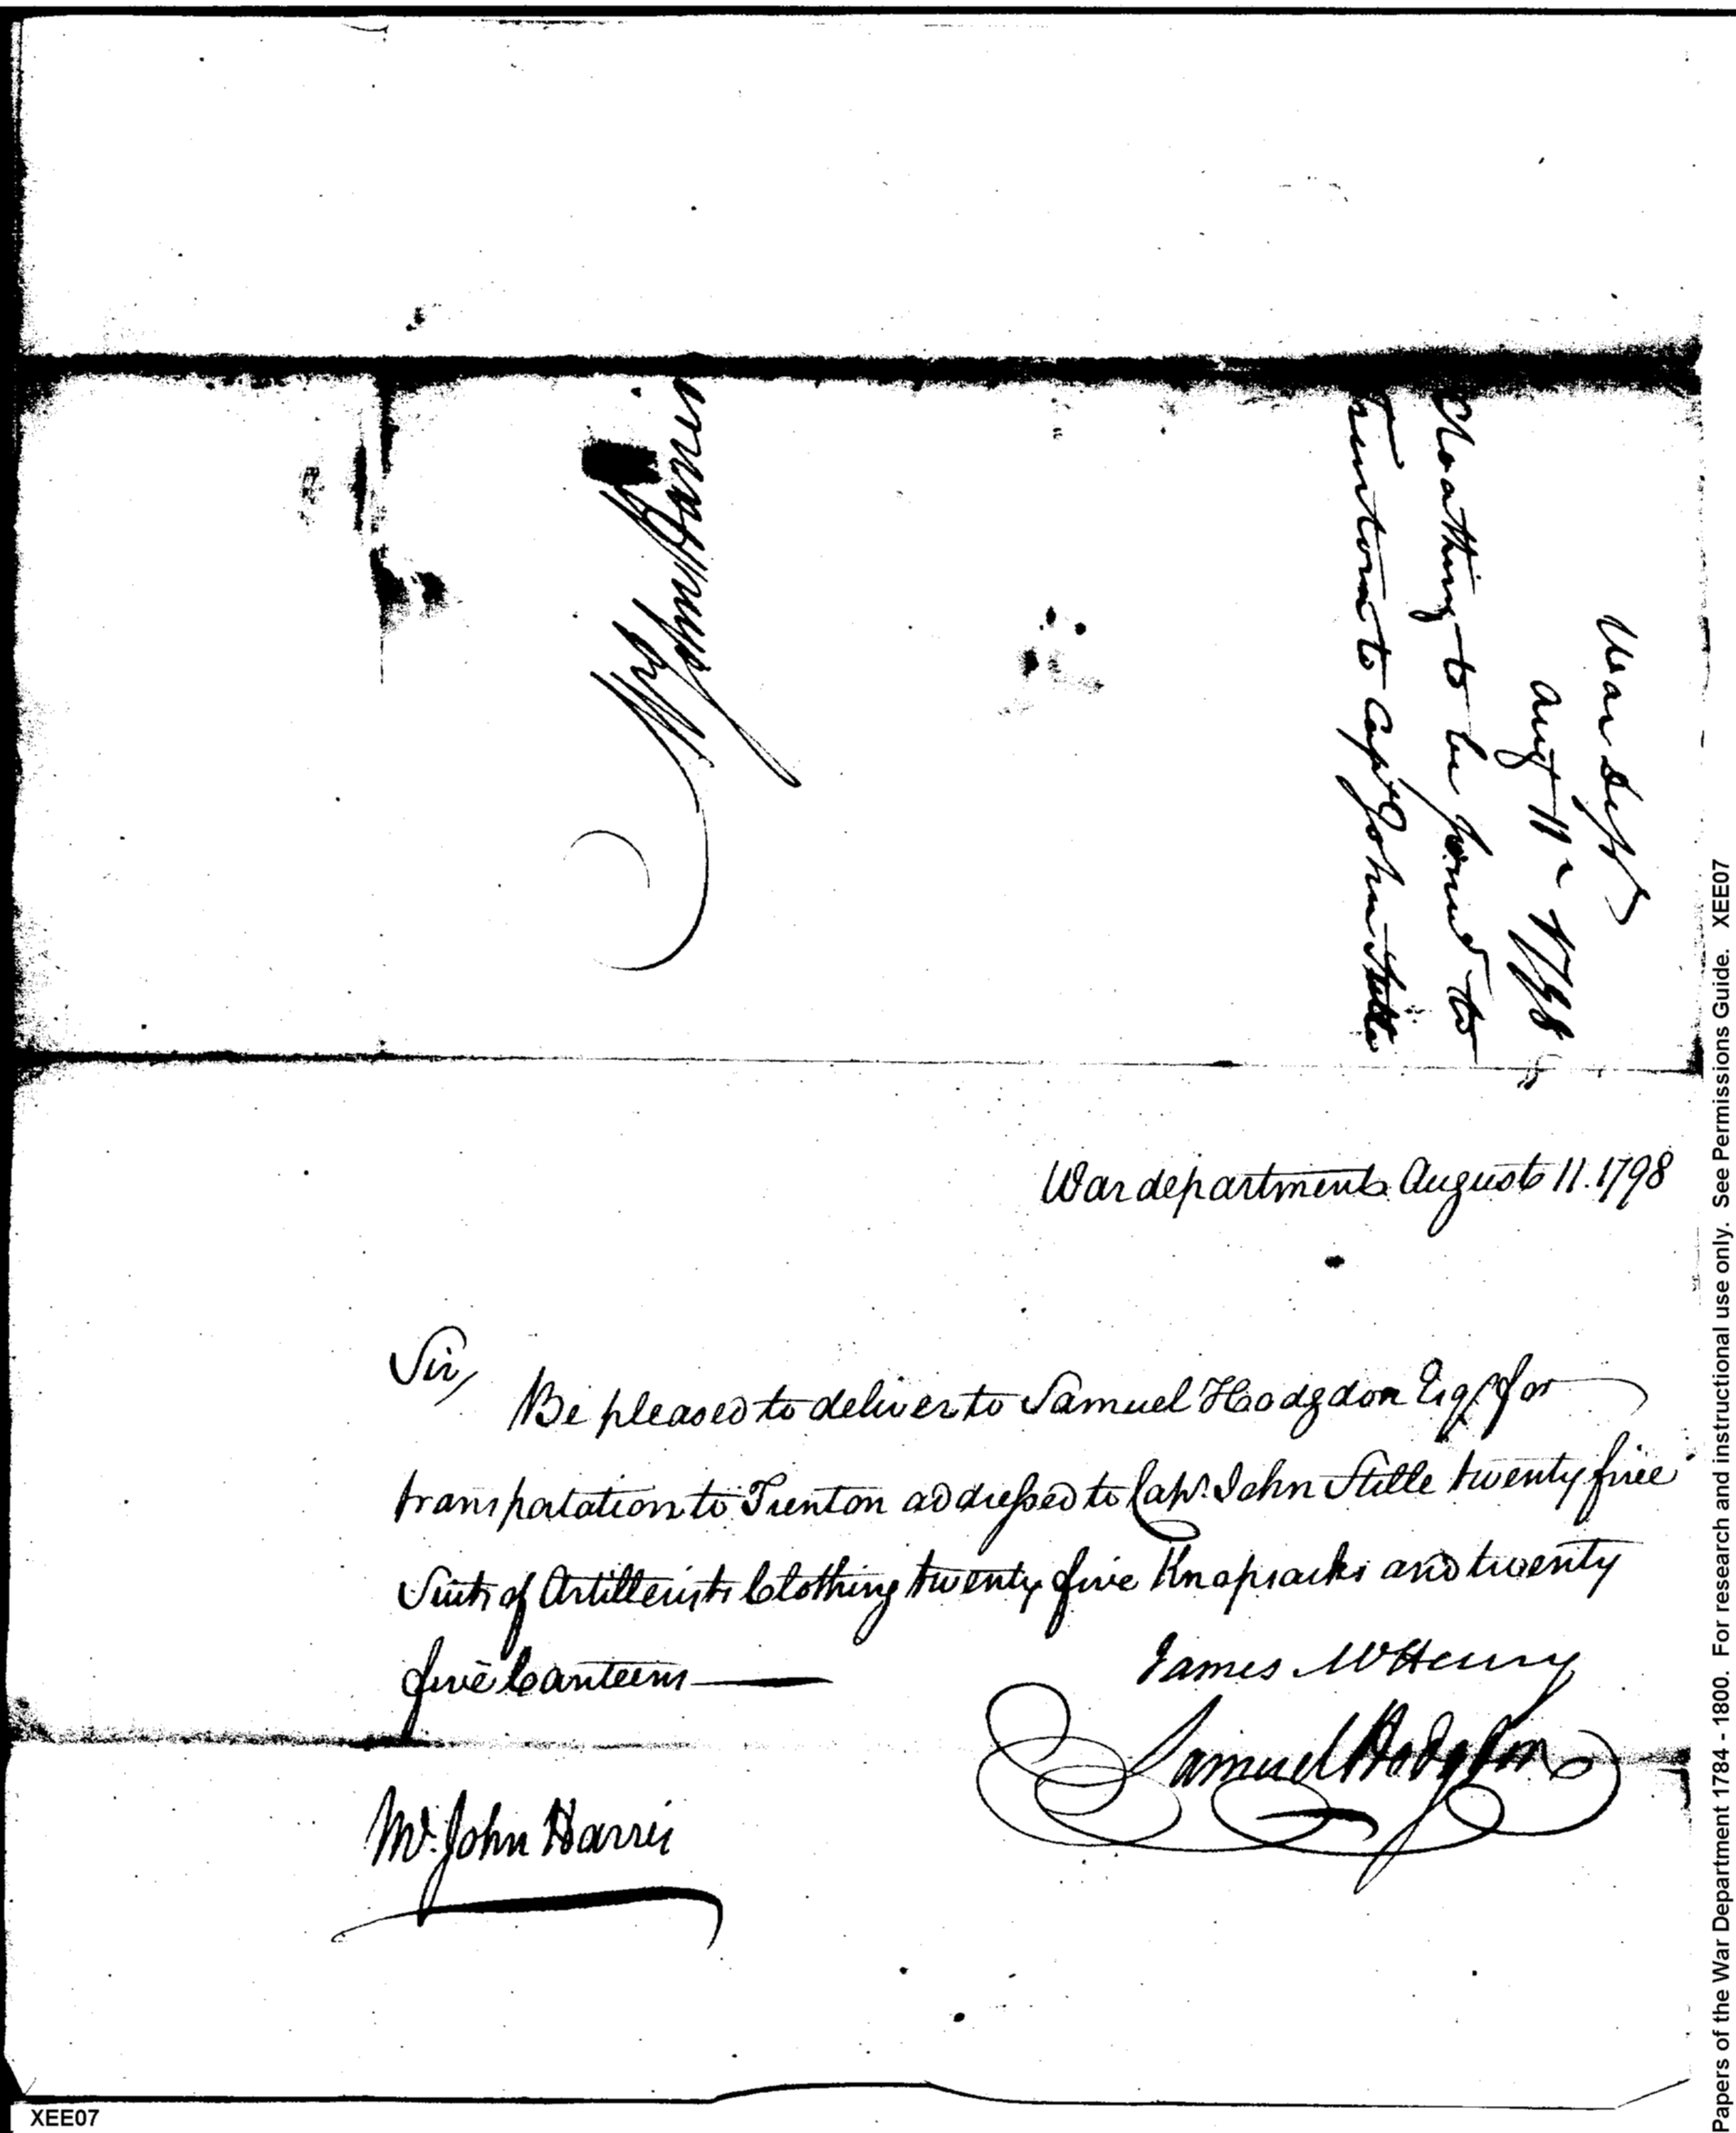 Mr John Harris
War Dept
Augt 11th 1798
Cloathing to be forwd to
Trenton to Capt John Stille
War department August 11. 1798
Sir,
Be pleased to deliver to Samuel Hodgdon Esqr for
transportation to Trenton addressed to Capt. John Stille twenty five
Suits of Artillerists Clothing twenty five Knapsacks and twenty
five Canteens
James McHenry
Samuel Hodgdon
Mr. John Harris
XEE07
Papers of the War Department 1784 - 1800. For research and instructional use only. See Permissions Guide. XEE07